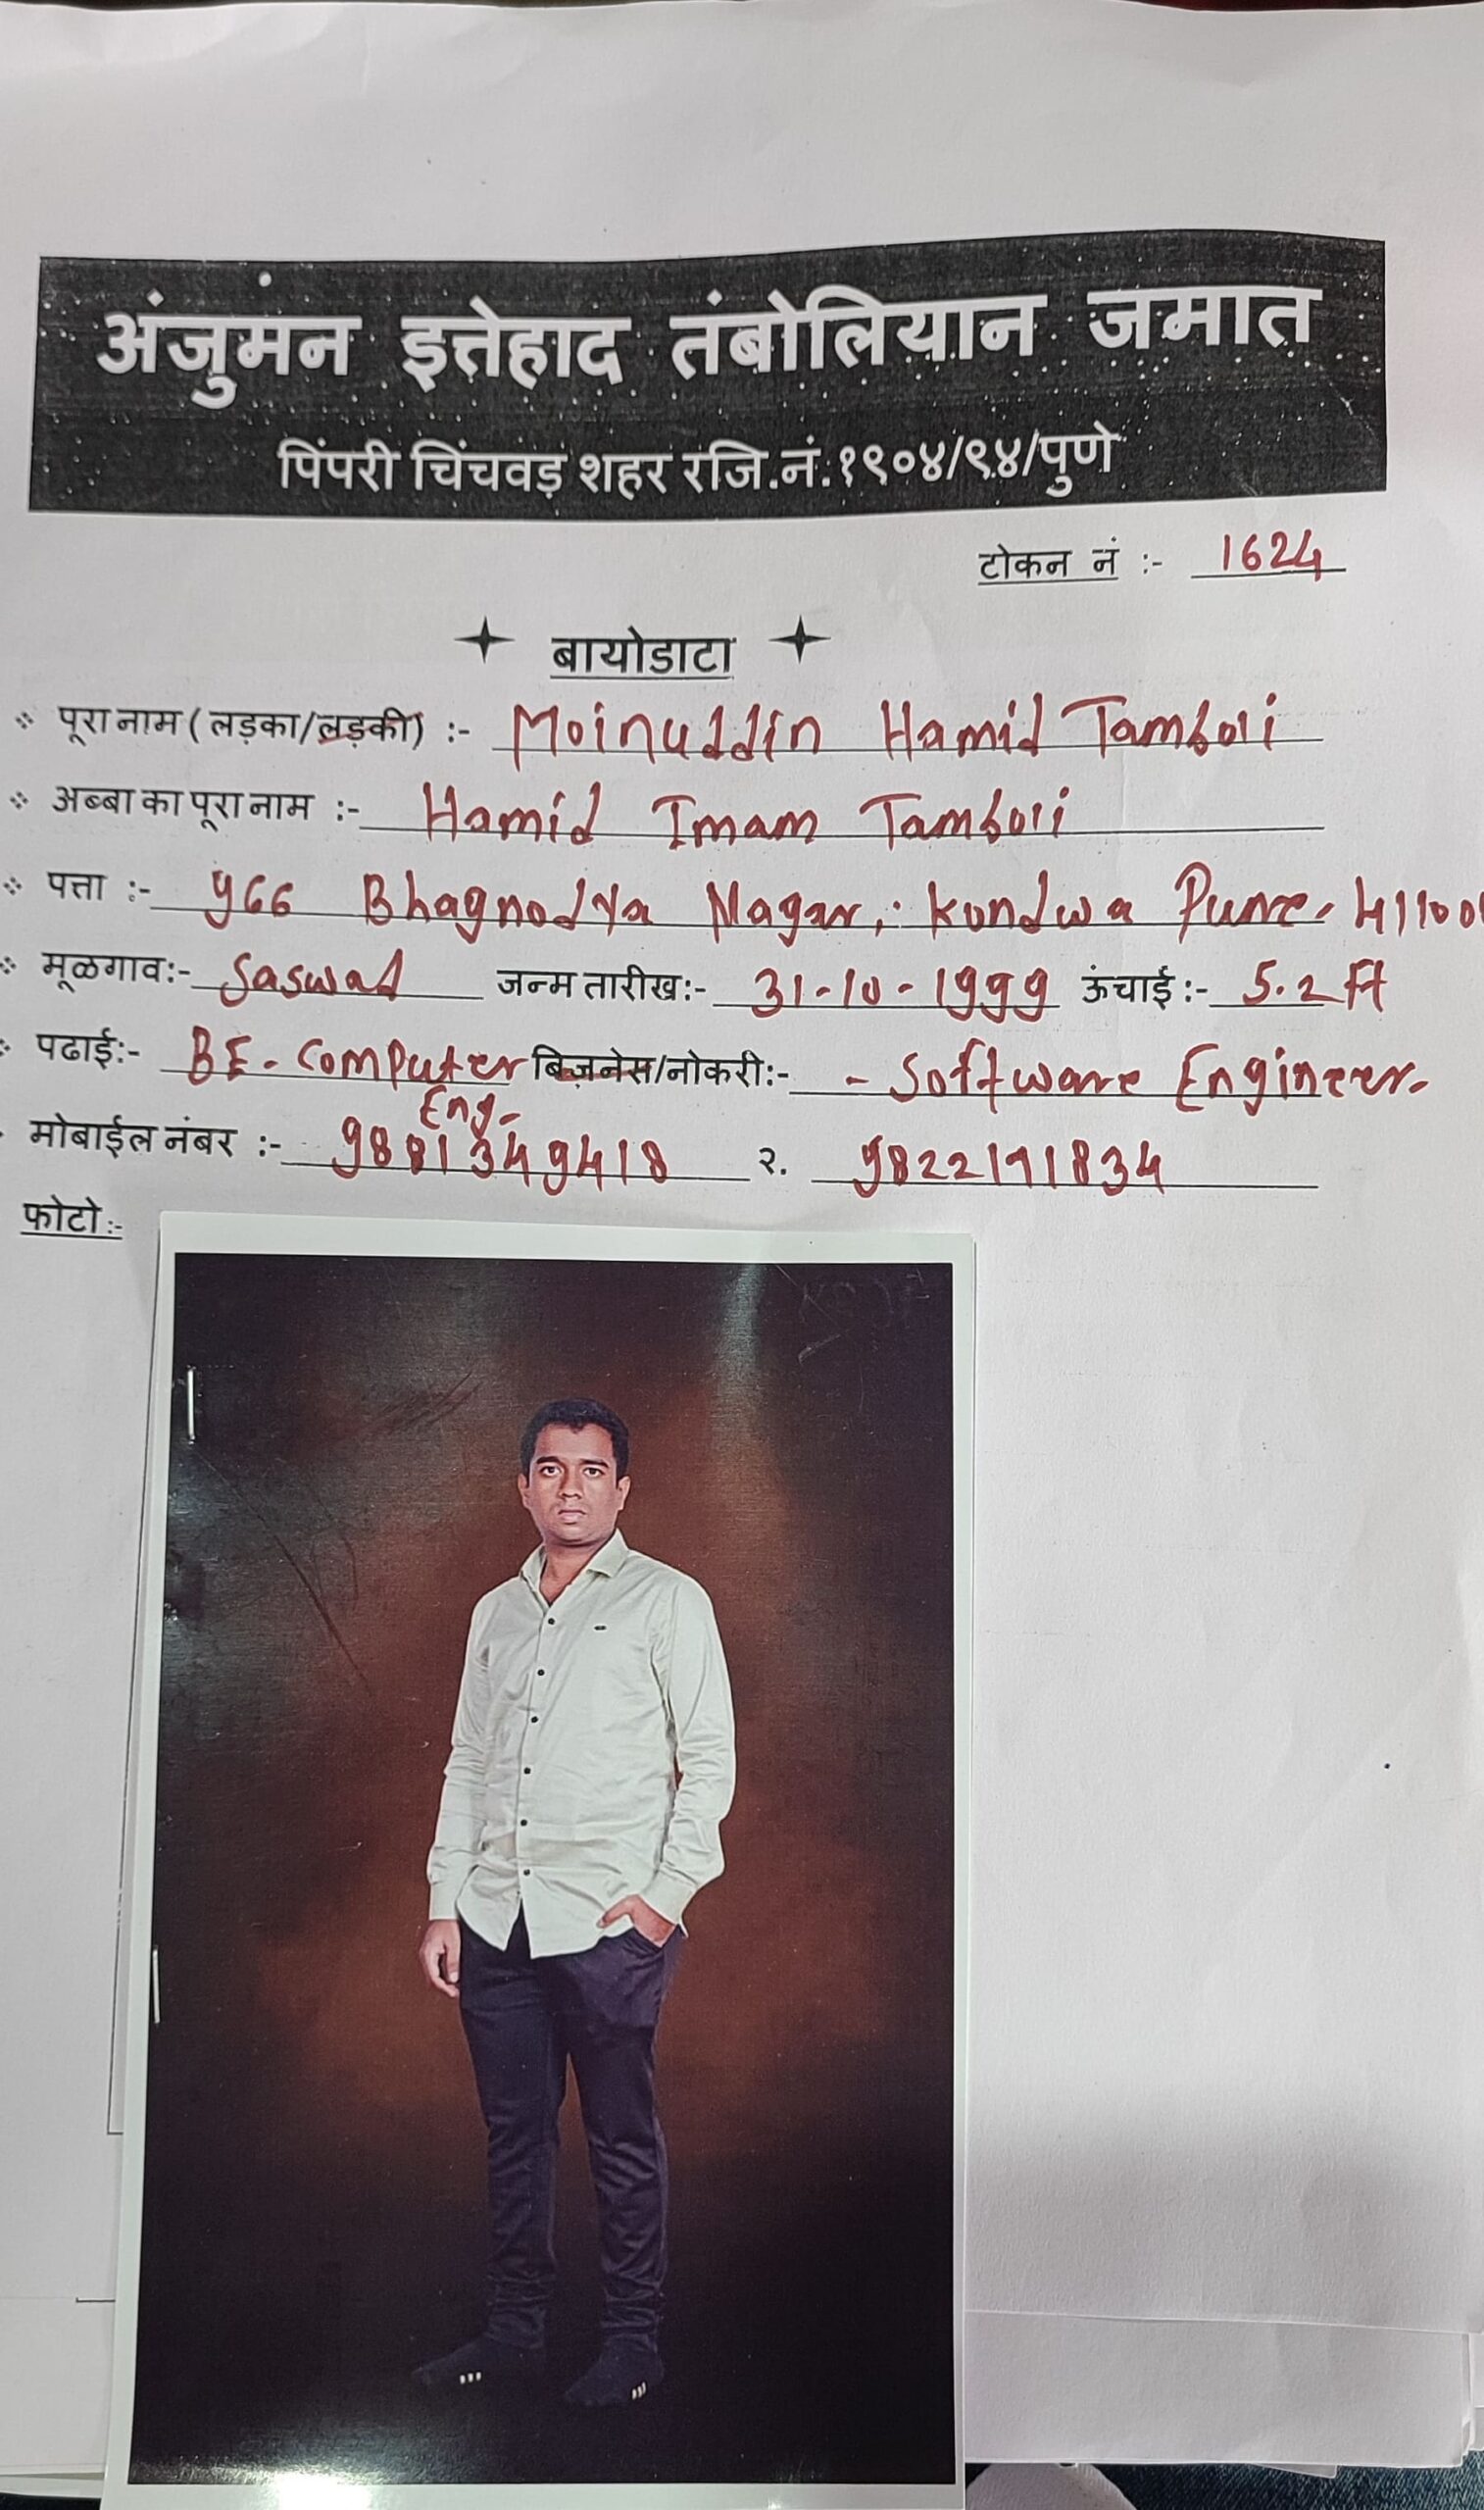 अंजुमन इत्तेहाद तंबोलियान जमात
पिंपरी चिंचवड़ शहर रजि.नं.१९०४/९४/पुणे
टोकन नं :- 1624
बायोडाटा
पूरा नाम (लड़का/लड़की) :- Moinuddin Hamid Tamboli
अब्बा का पूरा नाम :- Hamid Imam Tamboli
पत्ता :- 966 Bhagnodya Nagar, Kondwa Pune.
मूळगाव:- Saswad जन्म तारीख:- 31-10-1999 ऊंचाई:- 5.2 ft
पढाई:- BE-Computer बिज़नेस/नोकरी:- - Software Engineer.
Eng.
मोबाईल नंबर :- 9881349418 २. 9822191834
फोटो:-